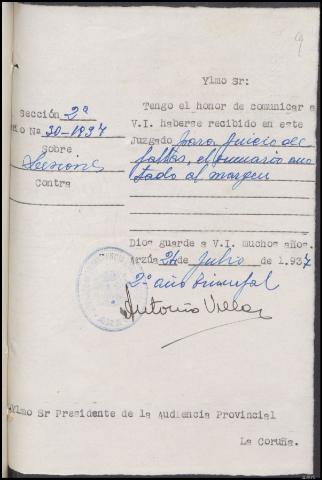 Ylmo Sr:
Sección 2ª
Nº 30-1937
Sobre
Lesiones
Contra
Tengo el honor de comunicar a
V.I. haberse recibido en este
Juzgado para juicio de
faltas, el sumario ano
tado al margen
Dios guarde a V.I. muchos años.
Arzúa 24 de Julio de 1.937
2º año triunfal
Antonio Villa
Ylmo Sr Presidente de la Audiencia Provincial
La Coruña.